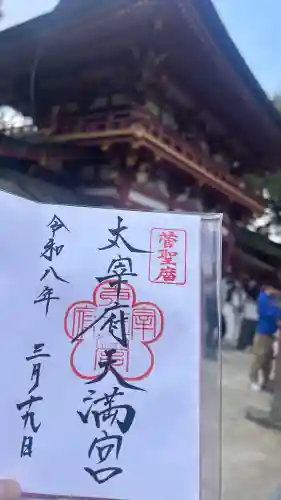 菅聖廟
太宰府天満宮
太宰府印
令和八年
三月十九日